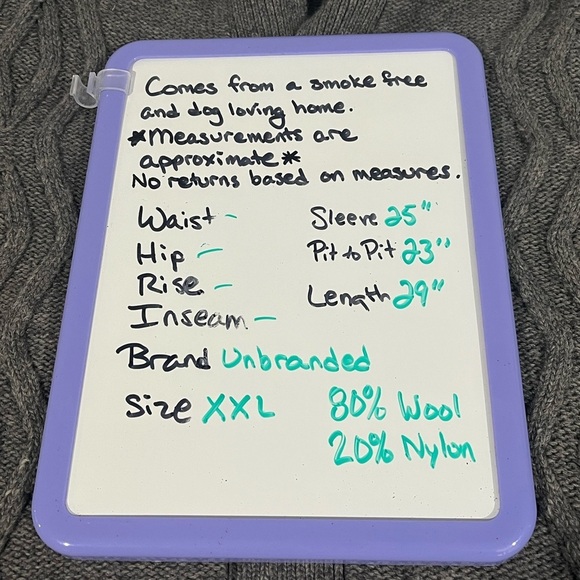 Comes from a smoke free
and dog loving home.
*Measurements are
approximate*
No returns based on measures.
Waist - Sleeve 25"
Hip - Pit to Pit 23"
Rise - Length 29"
Inseam -
Brand Unbranded
Size XXL 80% Wool
20% Nylon